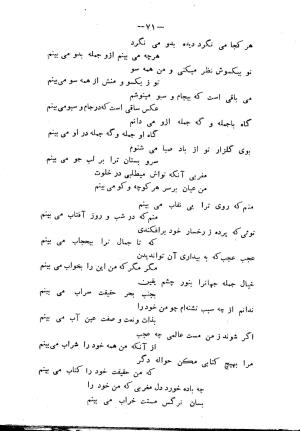 — ۷۱ —
هر کجا می نگرد دیده بدو می نگرد
هرچه می بینم ازو جمله بدو می بینم
تو بیکسوش نظر میکنی و من همه سو
تو ز یکسو و منش از همه سو می‌بینم
می باقی است که بیجام و سبو مینوشم
عکس ساقی است که در جام و سبو می‌بینم
گاه با جمله و گه جمله ازو می دانم
گاه او جمله و گه جمله در او می بینم
بوی گلزار تو از باد صبا می شنوم
سرو بستان ترا بر لب جو می بینم
مغربی آنکه تواش میطلبی در خلوت
من عیان بر سر هر کوچه و کو می بینم
منم که روی ترا بی نقاب می بینم
منم که در شب و روز آفتاب می بینم
توئی که پرده ز رخسار خود برافکندی
که تا جمال ترا بیحجاب می بینم
عجب عجب که به بیداری آن توان دیدن
مگر مگر که من این را بخواب می‌بینم
خیال جمله جهانرا بنور چشم یقین
بجنب بحر حقیقت سراب می بینم
ندانم از چه سبب تشنه‌ام چو من خود را
بذات و نعت و صفت عین آب می بینم
اگر شوند ز من مست عالمی چه عجب
از آنکه من همه خود را شراب می‌بینم
مرا بهیچ کتابی مکن حواله دگر
که من حقیقت خود را کتاب می بینم
چه باده خورد دل مغربی که من خود را
بسان نرگس مستت خراب می بینم